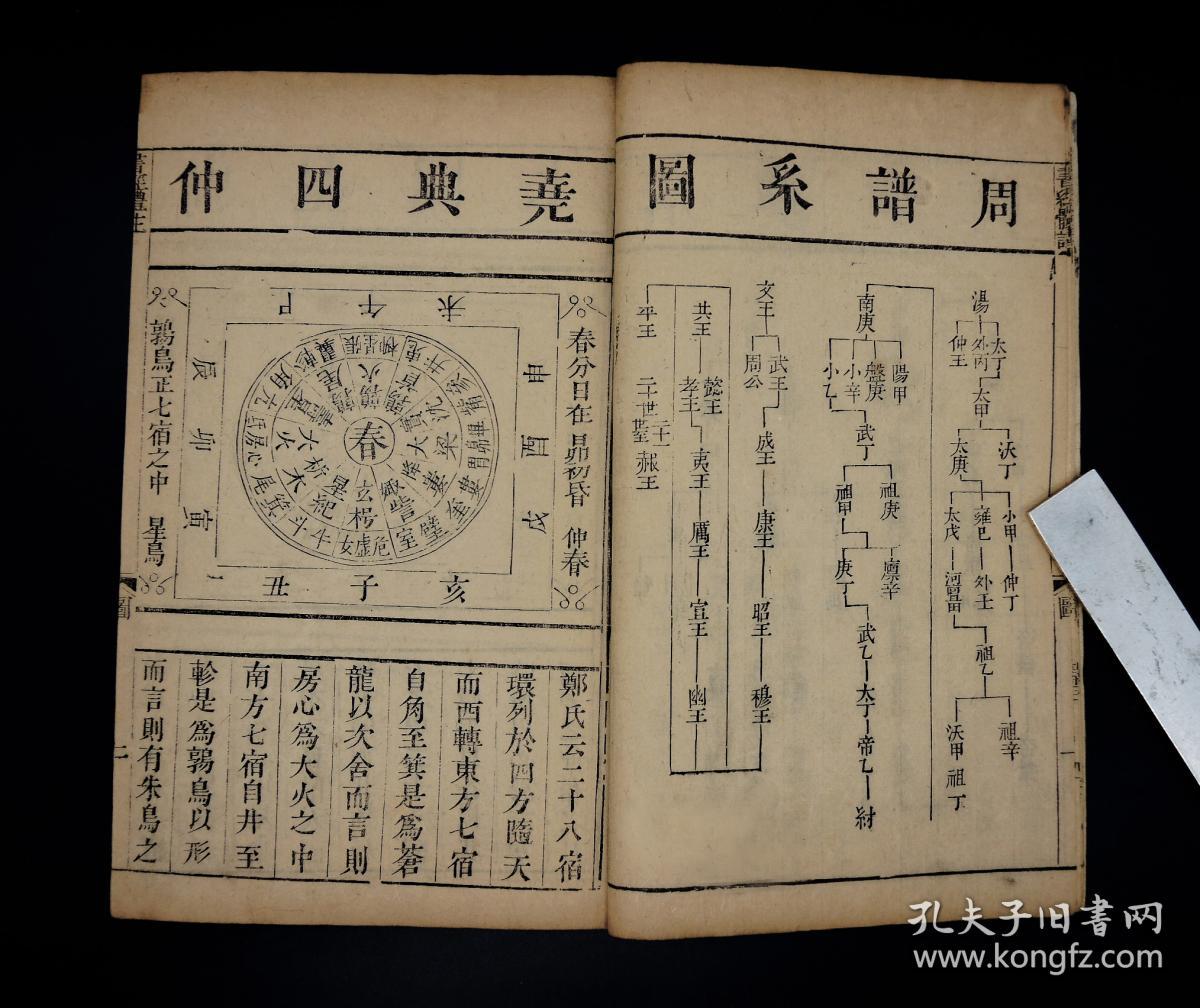 周譜系圖
湯
太丁
外丙
仲壬
太甲
沃丁
太庚
小甲
雍己
太戊
仲丁
外壬
河亶甲
祖乙
祖辛
沃甲
祖丁
南庚
陽甲
盤庚
小辛
小乙
武丁
祖庚
祖甲
廪辛
庚丁
武乙
太丁
帝乙
紂
文王
武王
周公
成王
康王
昭王
穆王
共王
懿王
孝王
夷王
厲王
宣王
幽王
平王
二十世
二十一世
赧王
圖
堯典四仲
春分日在昴初昏 仲春
未
午
巳
辰
卯
寅
丑
子
亥
戌
酉
申
春
玄枵
星紀
析木
大火
壽星
鶉尾
鶉火
鶉首
實沈
大梁
降婁
娵訾
女虛危
室壁
奎婁
井鬼
柳星張
角亢
氐房心
尾箕
斗牛
鶉鳥正七宿之中 星鳥
圖
鄭氏云二十八宿
環列於四方隨天
而西轉東方七宿
自角至箕是爲蒼
龍以次舍而言則
房心爲大火之中
南方七宿自井至
軫是爲鶉鳥以形
而言則有朱鳥之
二
孔夫子旧书网
www.kongfz.com